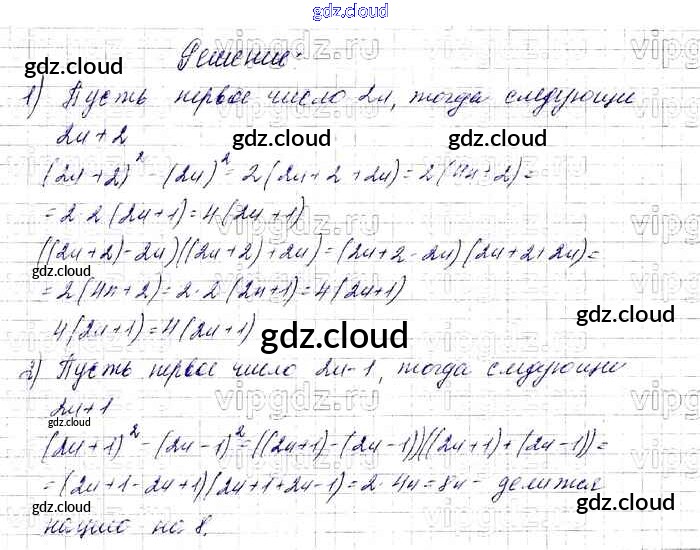 gdz.cloud
Решение:
1) Пусть первое число 2n, тогда следующие
2n+2
(2n+2)² - (2n)² = 2(2n+2+2n) = 2(4n+2) =
= 2·2(2n+1) = 4(2n+1)
((2n+2)-2n)((2n+2)+2n) = (2n+2-2n)(2n+2+2n) =
= 2(4n+2) = 2·2(2n+1) = 4(2n+1)
4(2n+1) = 4(2n+1)
2) Пусть первое число 2n-1, тогда следующие
2n+1
(2n+1)² - (2n-1)² = ((2n+1)-(2n-1))((2n+1)+(2n-1)) =
= (2n+1-2n+1)(2n+1+2n-1) = 2·4n = 8n - делится
нацело на 8.